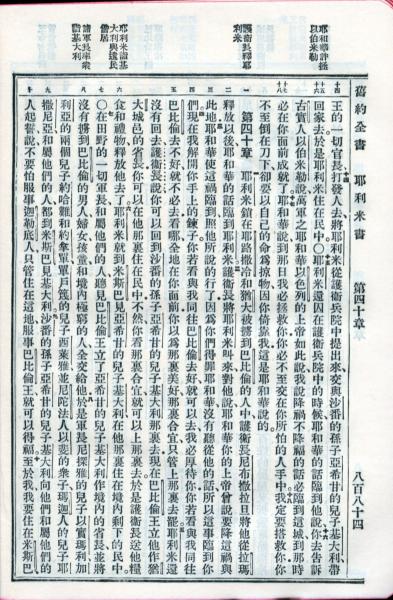 舊約全書　耶利米書　第四十章　八百八十四
耶和華許拯
以伯米勒
護衛長釋耶
利米
耶利米識基
大利與遺民
偕居
諸軍長率眾
詣基大利
王的一切官長打發人去將耶利米從護衛兵院中提出來交與沙番的孫子亞希甘的兒子基大利帶
回家去於是耶利米住在民中○耶利米還囚在護衛兵院中的時候耶和華的話臨到他說你去告訴
古實人以伯米勒說萬軍之耶和華以色列的上帝如此說我說降禍不降福的話必臨到這城到那時
必在你面前成就了耶和華說到那日我必拯救你你必不至交在你所怕的人手中我定要搭救你你
不至倒在刀下卻要以自己的命為掠物因你倚靠我這是耶和華說的
第四十章　耶利米鎖在耶路撒冷和猶大被擄到巴比倫的人中護衛長尼布撒拉旦將他從拉瑪
釋放以後耶和華的話臨到耶利米護衛長將耶利米叫來對他說耶和華你的上帝曾說要降這禍與
此地耶和華使這禍臨到照他所說的行了因為你們得罪耶和華沒有聽從他的話所以這事臨到你
們現在我解開你手上的鍊子你若看與我同往巴比倫去好就可以去我必厚待你你若看與我同往
巴比倫去不好就不必去看哪全地在你面前你以為那裏美好那裏合宜只管上那裏去罷耶利米還
沒有回去護衛長說你可以回到沙番的孫子亞希甘的兒子基大利那裏去現在巴比倫王立他作猶
大城邑的省長你可以在他那裏住在民中不然你看那裏合宜就可以上那裏去於是護衛長送他糧
食和禮物釋放他去了耶利米就到米斯巴見亞希甘的兒子基大利在他那裏住在境內剩下的民中
○在田野的一切軍長和屬他們的人聽見巴比倫王立了亞希甘的兒子基大利作境內的省長並將
沒有擄到巴比倫的男人婦女孩童和境內極窮的人全交給他於是軍長尼探雅的兒子以實瑪利加
利亞的兩個兒子約哈難和約拿單單戶篾的兒子西萊雅並尼陀法人以斐的眾子瑪迦人的兒子耶
撒尼亞和屬他們的人都到米斯巴見基大利沙番的孫子亞希甘的兒子基大利向他們和屬他們的
人起誓說不要怕服事迦勒底人只管住在這地服事巴比倫王就可以得福至於我我要住在米斯巴